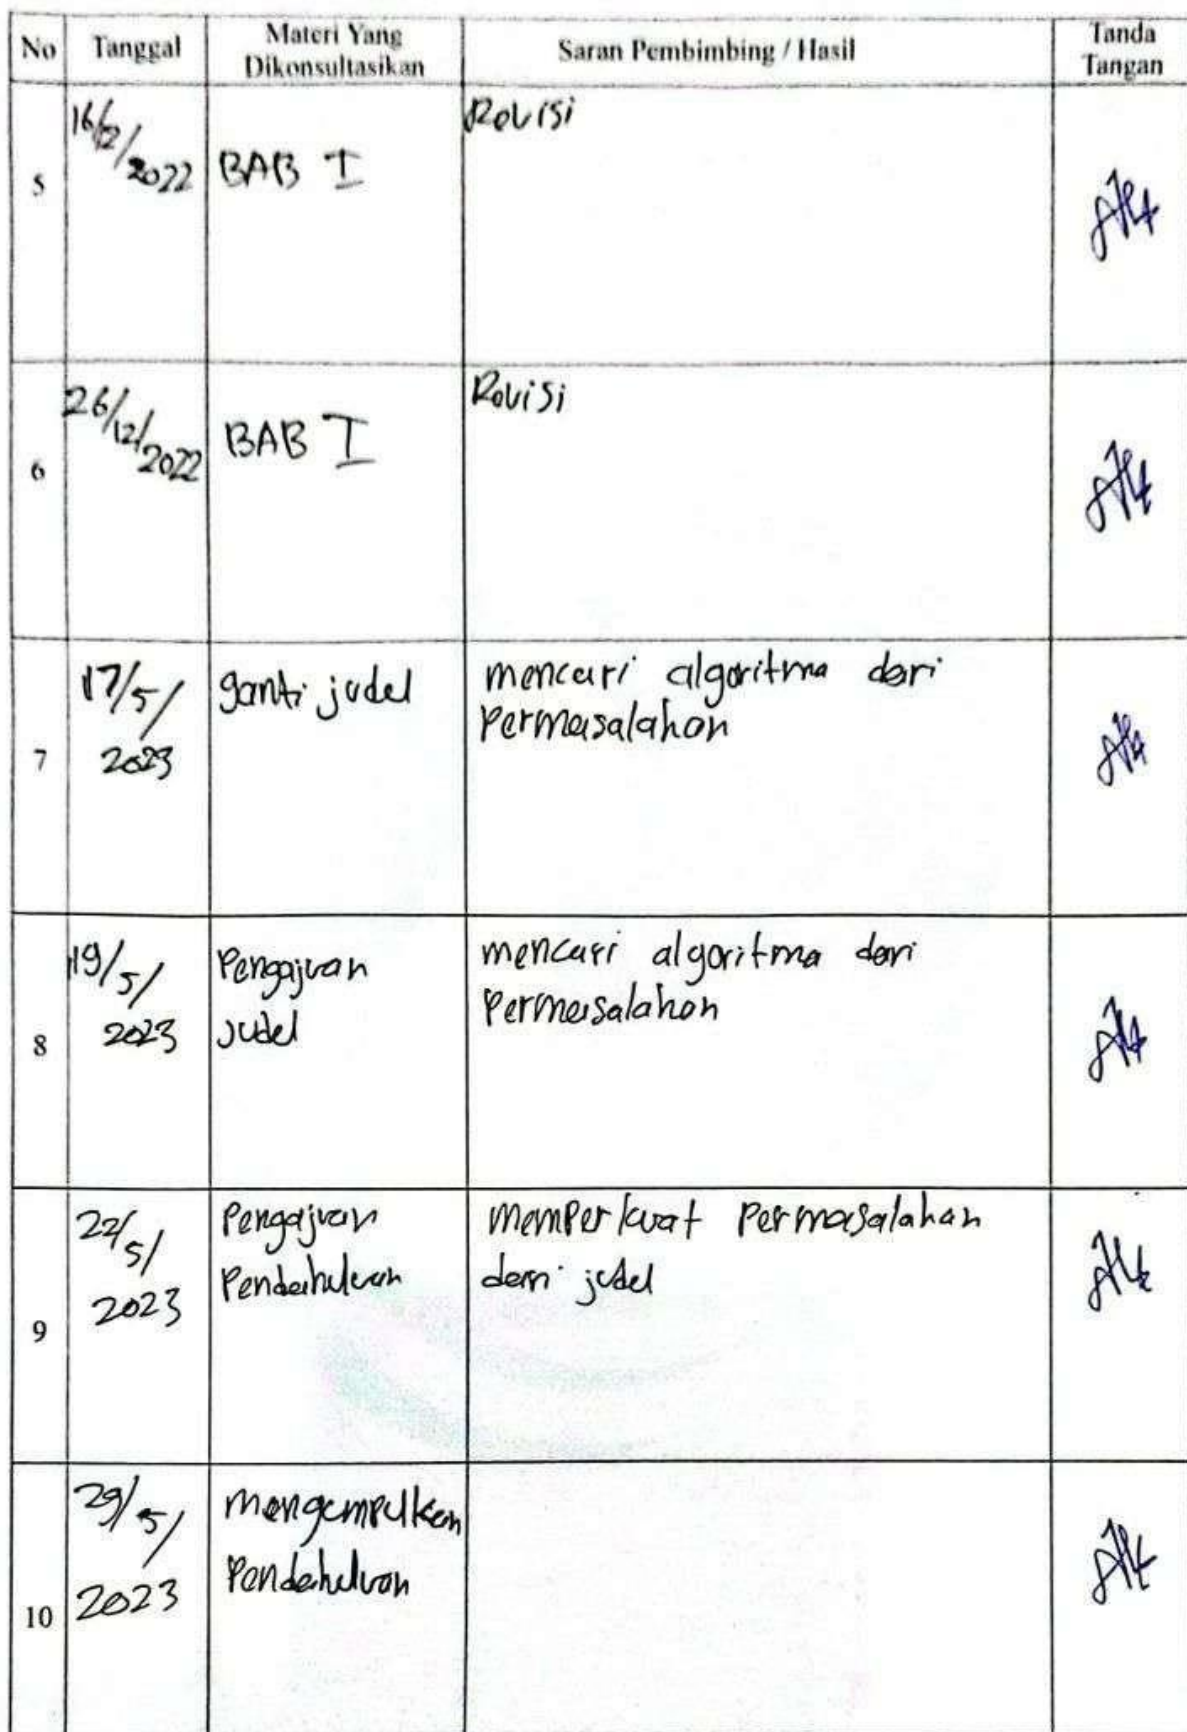 No Tanggal Materi Yang Dikonsultasikan Saran Pembimbing / Hasil Tanda Tangan
5 16/12/2022 BAB I Revisi
6 26/12/2022 BAB I Revisi
7 17/5/2023 ganti judul mencari algoritma dari
permasalahan
8 19/5/2023 Pengajuan judul mencari algoritma dari
permasalahan
9 22/5/2023 Pengajuan Pendahuluan memperkuat permasalahan
dari judul
10 29/5/2023 mengumpulkan
Pendahuluan